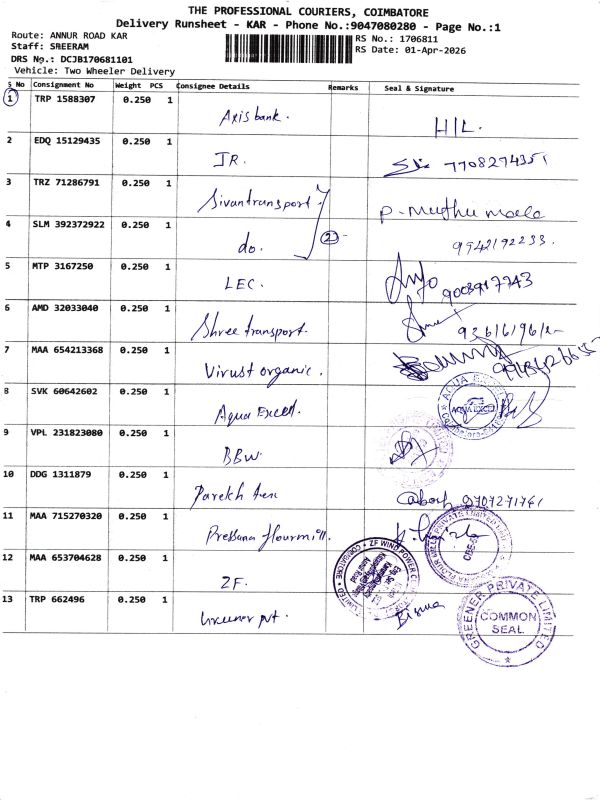 THE PROFESSIONAL COURIERS, COIMBATORE
Delivery Runsheet - KAR - Phone No.:9047080280 - Page No.:1
Route: ANNUR ROAD KAR
RS No.: 1706811
Staff: SREERAM
RS Date: 01-Apr-2026
DRS No.: DCJB170681101
Vehicle: Two Wheeler Delivery
S No Consignment No Weight PCS Consignee Details Remarks Seal & Signature
1 TRP 1588307 0.250 1 Axis bank. H/L.
2 EDQ 15129435 0.250 1 JR. 7708274351
3 TRZ 71286791 0.250 1 Sivantransport P. Muthu
4 SLM 392372922 0.250 1 do. 2 9942192233.
5 MTP 3167250 0.250 1 LEC.
6 AMD 32033040 0.250 1 Shree transport.
7 MAA 654213368 0.250 1 Virust organic.
8 SVK 60642602 0.250 1 Aqua Excel. AQUA EXCEL
9 VPL 231823080 0.250 1 BBW.
10 DDG 1311879 0.250 1 Parekh
11 MAA 715270320 0.250 1 flourmill. FLOUR MILLS PRIVATE LIMITED
12 MAA 653704628 0.250 1 ZF. ZF WIND POWER COIMBATORE
13 TRP 662496 0.250 1 Greener pvt. GREENER PRIVATE LIMITED
COMMON
SEAL